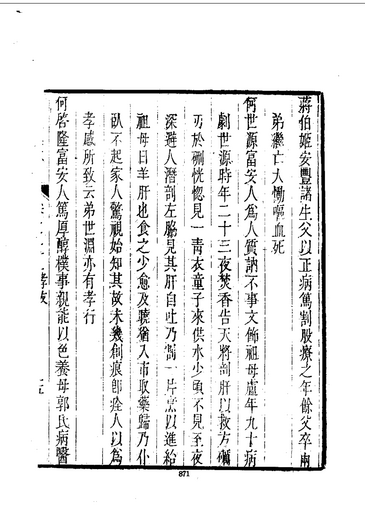 蔣伯姬安豐諸生父以正病篤割股療之年餘父卒兩
弟繼亡大慟嘔血死
何世源富安人為人質訥不事文飾祖母盧年九十病
劇世源時年二十三夜焚香告天將剖肝以救方礪
刃於硎恍惚見一青衣童子來供水少頃不見至夜
深避人潛剖左脇見其肝自吐乃臠一片烹以進給
祖母曰羊肝也食之少愈及曉猶入市取藥歸乃仆
臥不起家人驚視始知其故未幾創痕卽痊人以為
孝感所致云弟世淵亦有孝行
何啓隆富安人篤厚醇樸事親能以色養母郭氏病醫
孝友
十五
871